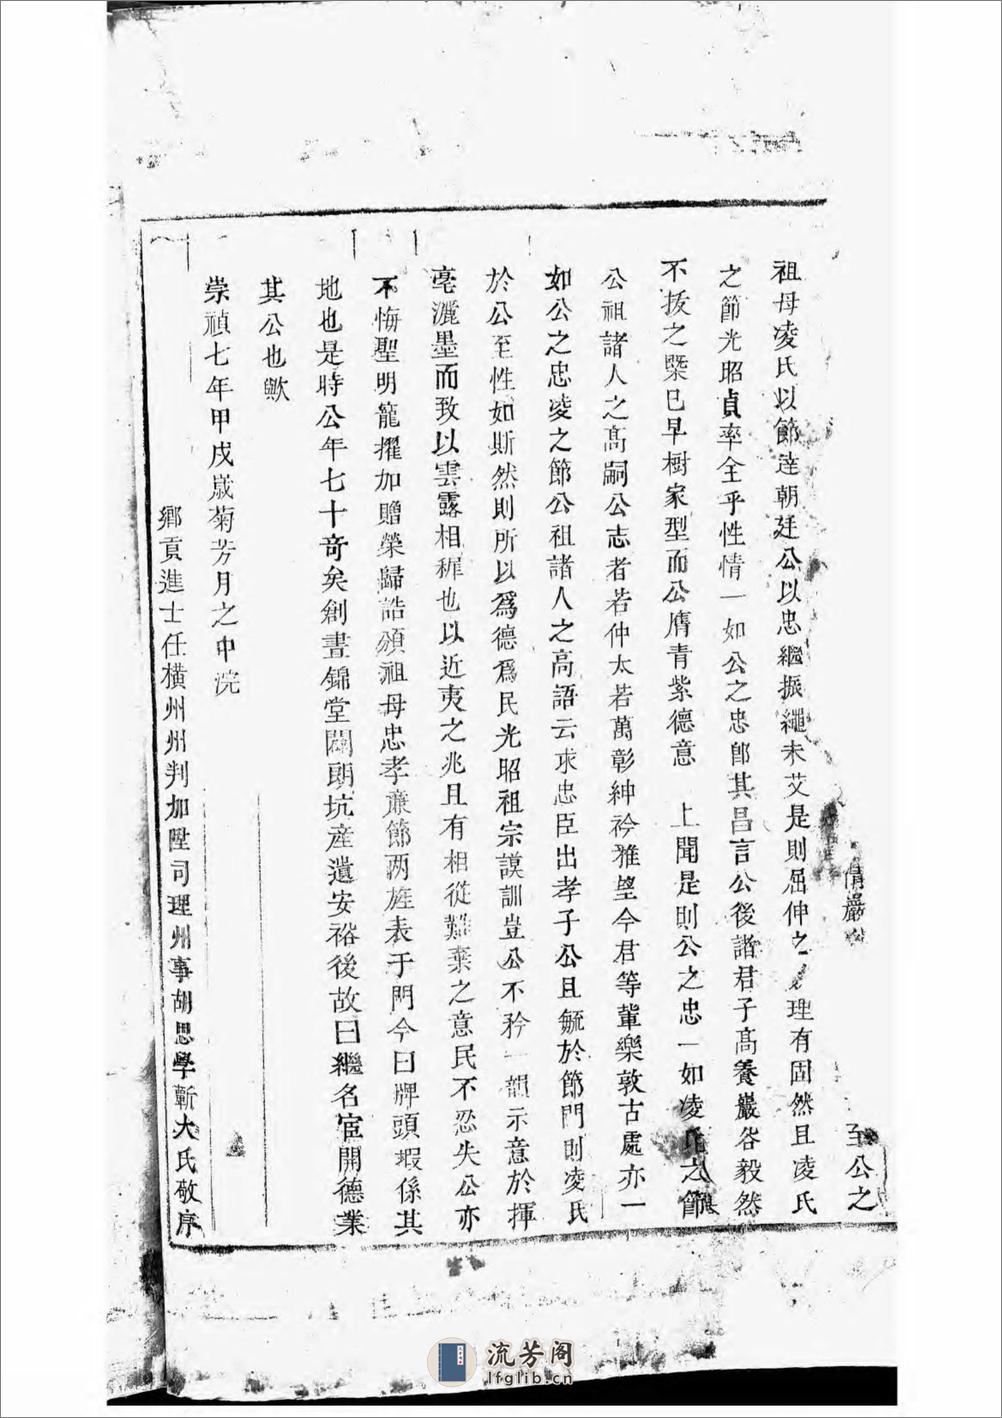 情巖 至公之
祖母凌氏以節達朝廷公以忠繼振繩未艾是則屈伸之理有固然且凌氏
之節光昭貞率全乎性情一如公之忠卽其昌言公後諸君子高養巖谷毅然
不拔之槩已早樹家型而公膺青紫德意 上聞是則公之忠一如凌氏之節
公祖諸人之高嗣公志者若仲太若萬彰紳衿雅望今君等軰樂敦古處亦一
如公之忠凌之節公祖諸人之高語云求忠臣出孝子公且毓於節門則凌氏
於公至性如斯然則所以爲德爲民光昭祖宗謨訓豈公不矜一韻示意於揮
毫灑墨而致以雲露相穉也以近夷之兆且有相從難棄之意民不忍失公亦
不悔聖明寵擢加贈榮歸誥頒祖母忠孝蕭節两旌表于門今曰牌頭嘏係其
地也是時公年七十竒矣創晝錦堂闢朗坑産遺安裕後故曰繼名宦開德業
其公也歟
崇禎七年甲戌歳菊芳月之中浣
鄉貢進士任橫州州判加陞司理州事胡思學蘄大氏敬序
流芳阁
lfglib.cn